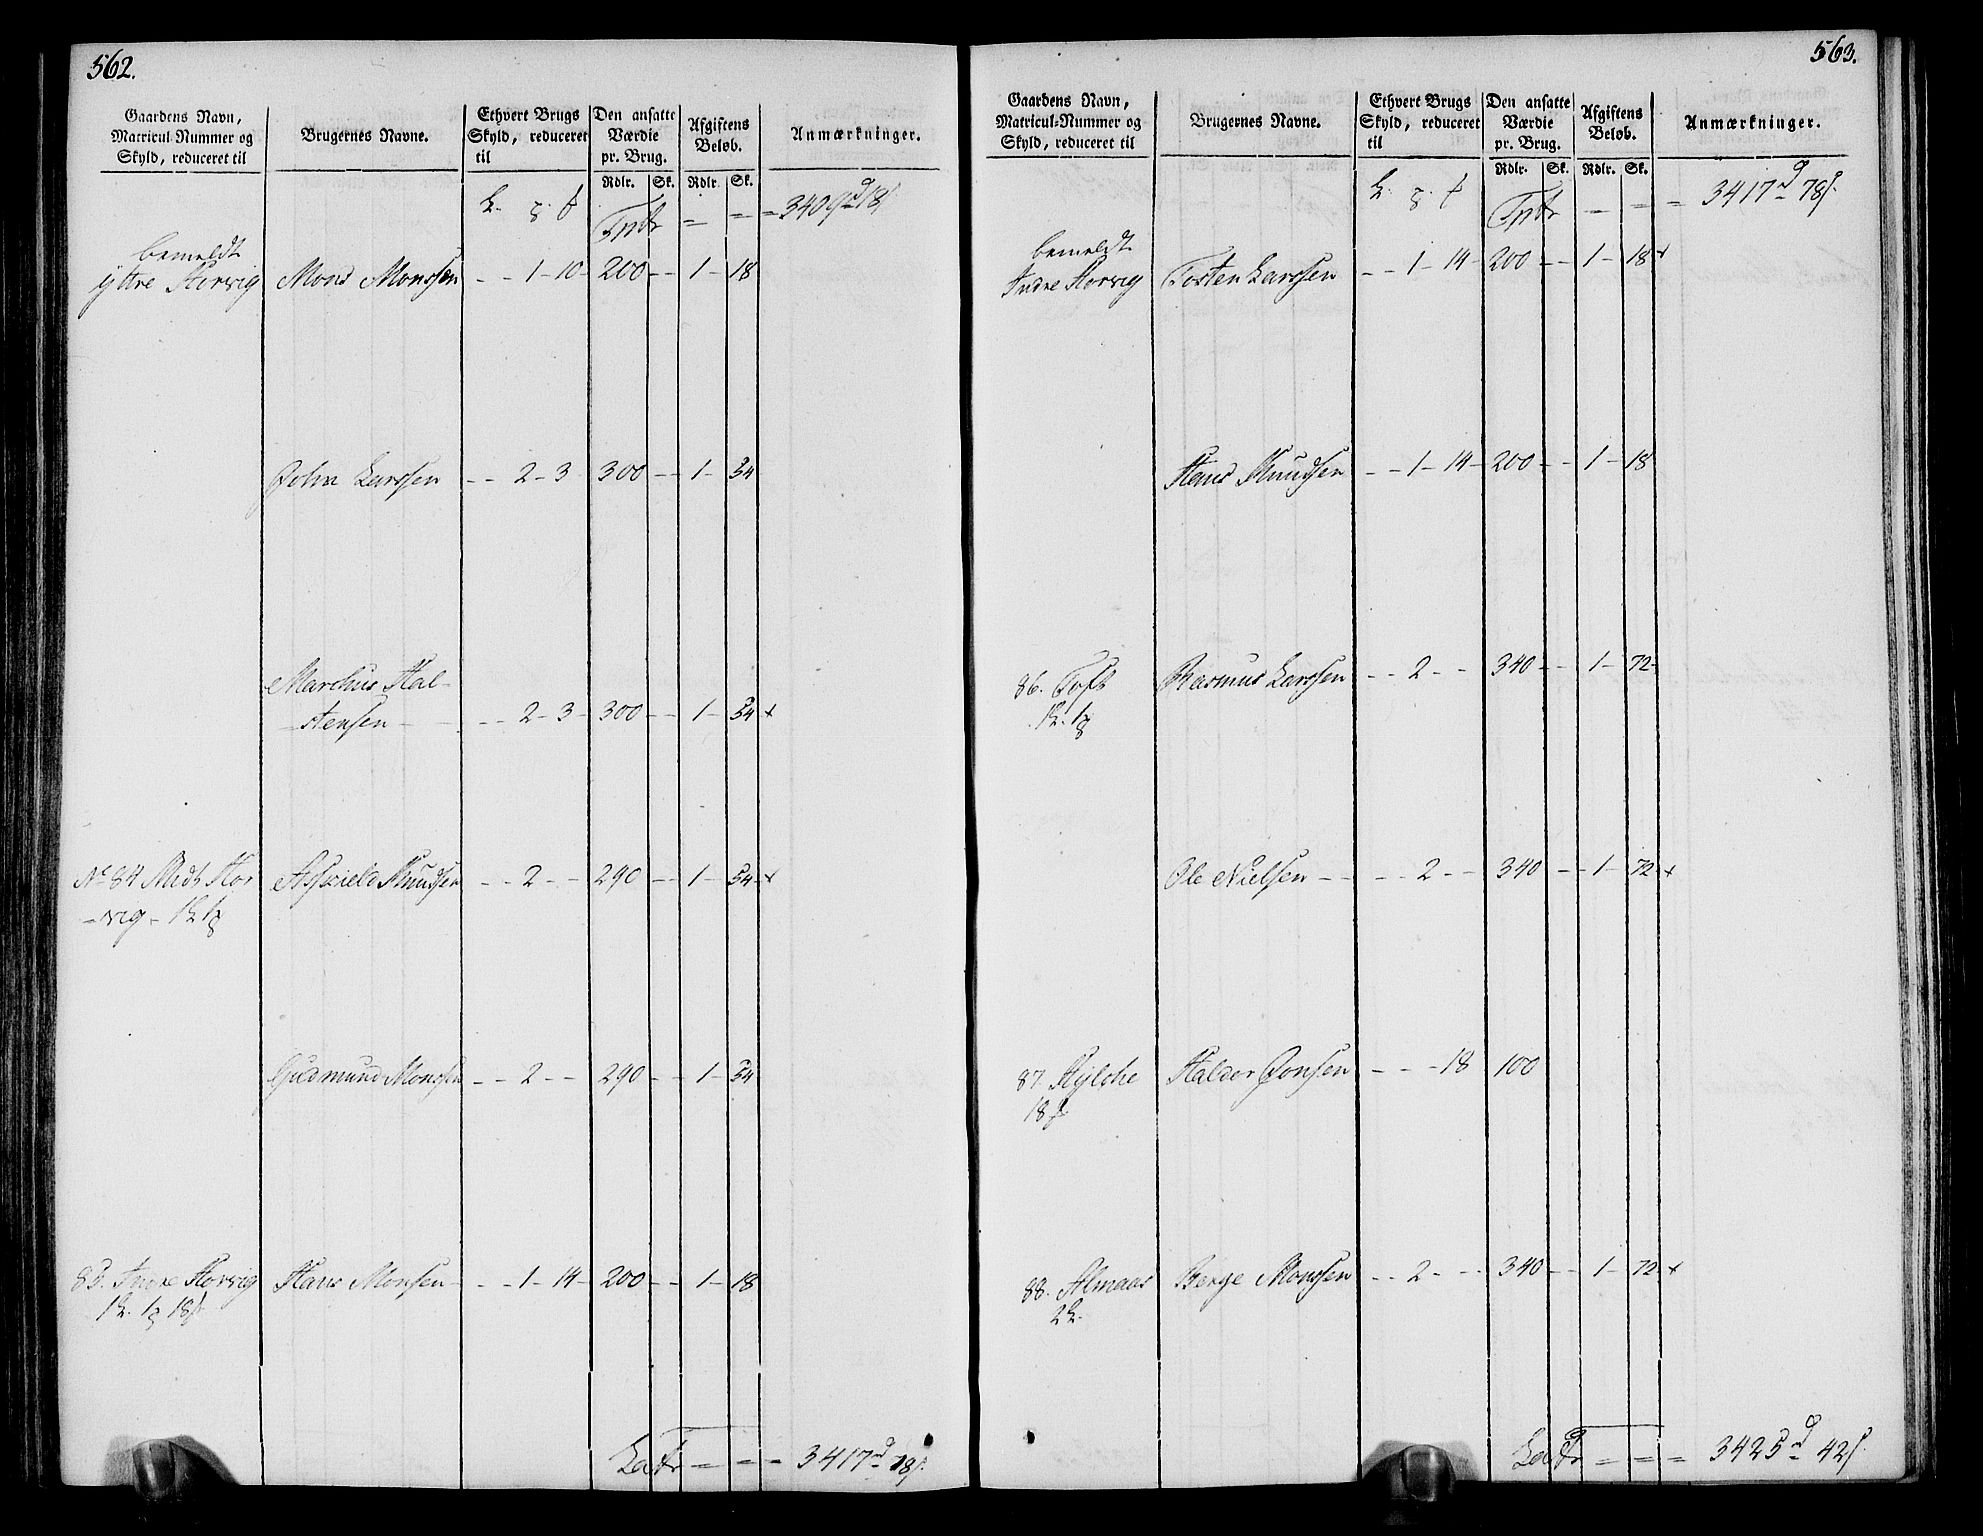 562.
Gaardens Navn, Matricul-Nummer og Skyld, reduceret til
Brugernes Navne.
Ethvert Brugs Skyld, reduceret til
Den ansatte Værdie pr. Brug.
Afgiftens Beløb.
Anmærkninger.
Rdlr. Sk. Rdlr. Sk.
Tntr = = = 3409d 18s
bemeldt
Yttre Horvig Mons Monssen - - 1 - 10 - 200 - - 1 - 18
John Larssen - - 2 - 3 300 - - 1 - 54
Marchus Hal-
-stensen - - - 2 - 3 - 300 - - 1 - 54 +
No 84 Midt Hor Assuield Knudsen - - 2 - - 290 - - 1 - 54 +
-vig -
Gudmund Monssen - - 2 - - 290 - - 1 - 54
85. Indre Horvig Hans Monsen - - - 1 - 14 - 200 - - 1 - 18
Latr = = = 3417d 78s.
563.
Gaardens Navn, Matricul-Nummer og Skyld, reduceret til
Brugernes Navne.
Ethvert Brugs Skyld, reduceret til
Den ansatte Værdie pr. Brug.
Afgiftens Beløb.
Anmærkninger.
Rdlr. Sk. Rdlr. Sk.
Tntr = = = 3417d 78s.
bemeldt
Indre Horvig Tosten Larssen - - 1 - 14 - 200 - - 1 - 18 +
Hans Knudsen - - 1 - 14 - 200 - - 1 - 18
86. Toft Rasmus Larssen - - 2 - - 340 - - 1 - 72 -
Ole Nielsen - - - - 2 - - 340 - - 1 - 72 +
87. Hylche Haldor Jonsen - - - 18 100
88. Almaas Berge Monssen - - 2 - - - 340 - - 1 - 72 +
Latr = = = 3425d 42s.